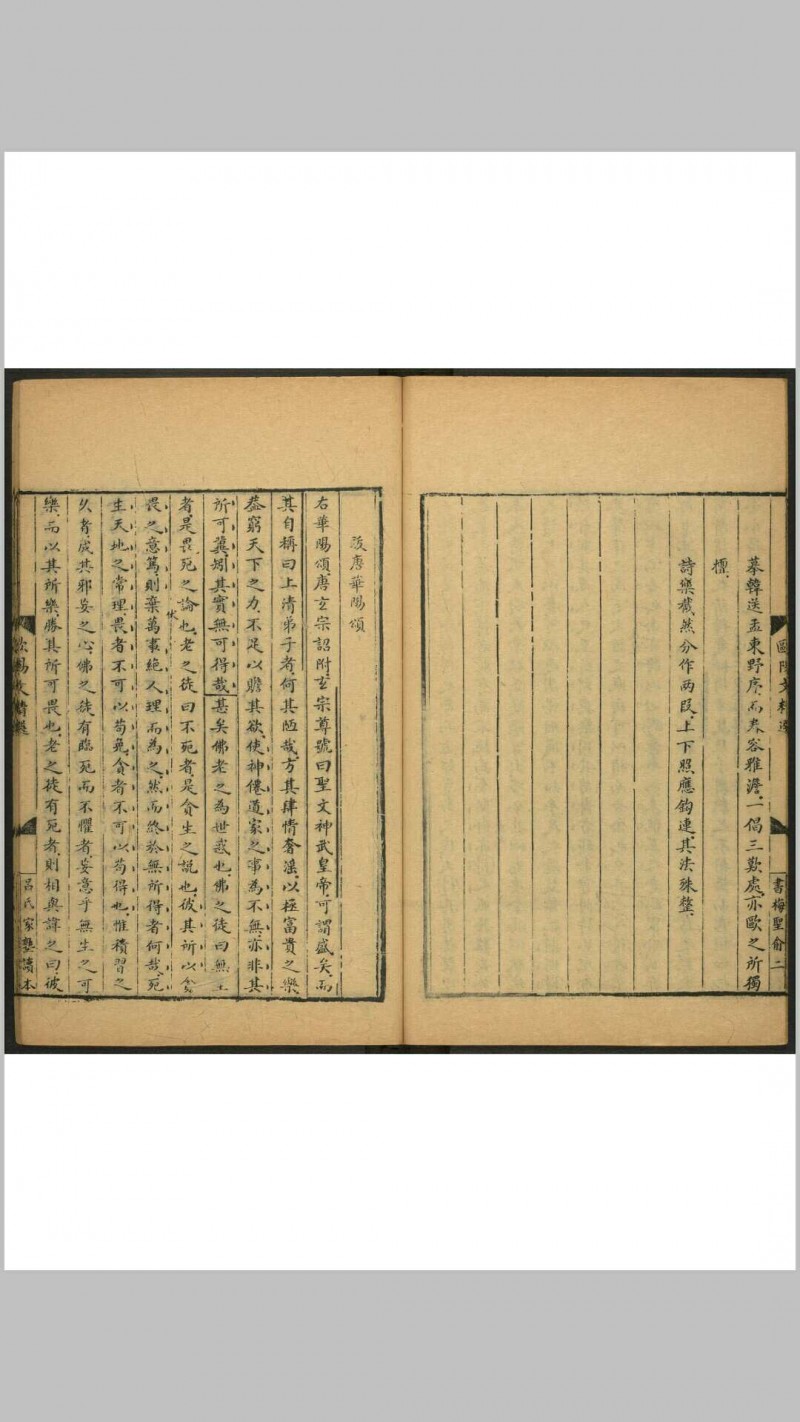 歐陽文精選
書梅聖俞二
摹韓送孟東野序而舂容雅澹一倡三歎處亦歐之所獨
標
詩樂截然分作兩段上下照應鈎連其法殊整
跋唐華陽頌
右華陽頌唐玄宗詔附玄宗尊號曰聖文神武皇帝可謂盛矣而
其自稱曰上清弟子者何其陋哉方其肆情奢淫以極富貴之樂
蓋窮天下之力不足以贍其欲使神僊道家之事為不無亦非其
所可冀矧其實無可得哉甚矣佛老之為世惑也佛之徒曰無生
者是畏死之論也老之徒曰不死者是貪生之說也彼其所以貪
畏之意篤則棄萬事絕人理而為之然而終於無所得者何哉死
生天地之常理畏者不可以苟免貪者不可以苟得也惟積習之
久者成其邪妄之心佛之徒有臨死而不懼者妄意乎無生之可
樂而以其所樂勝其所可畏也老之徒有死者則相與諱之曰彼
歐陽文精選
呂氏家塾讀本